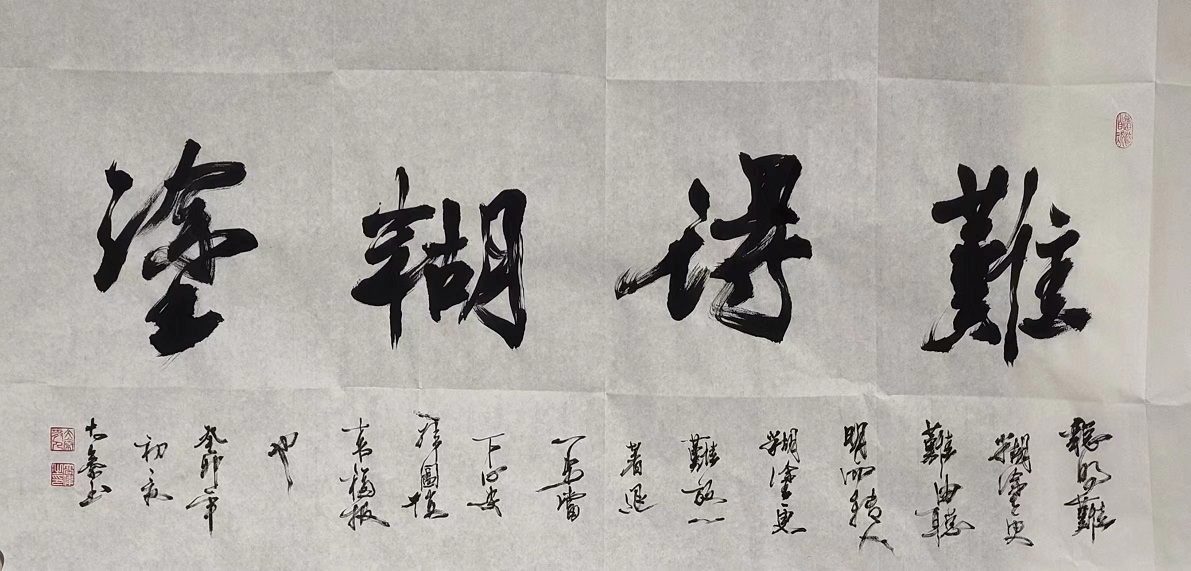 難得糊塗
聰明難
糊塗更
難由聰
明而轉入
糊塗更
難放一
著退
一步當
下心安
非圖後
來福報
也
癸卯年
初